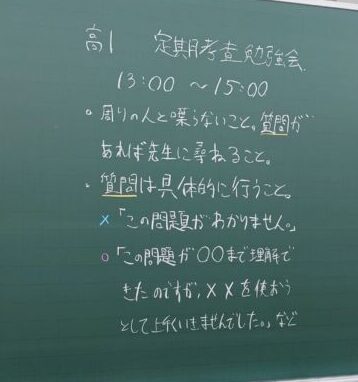 高1 定期考査勉強会
13:00 ～15:00
・周りの人と喋らないこと。質問が
あれば先生に尋ねること。
・質問は具体的に行うこと。
×「この問題がわかりません。」
○「この問題が〇〇まで理解で
きたのですが、××を使おう
として上手くいきませんでした。」など